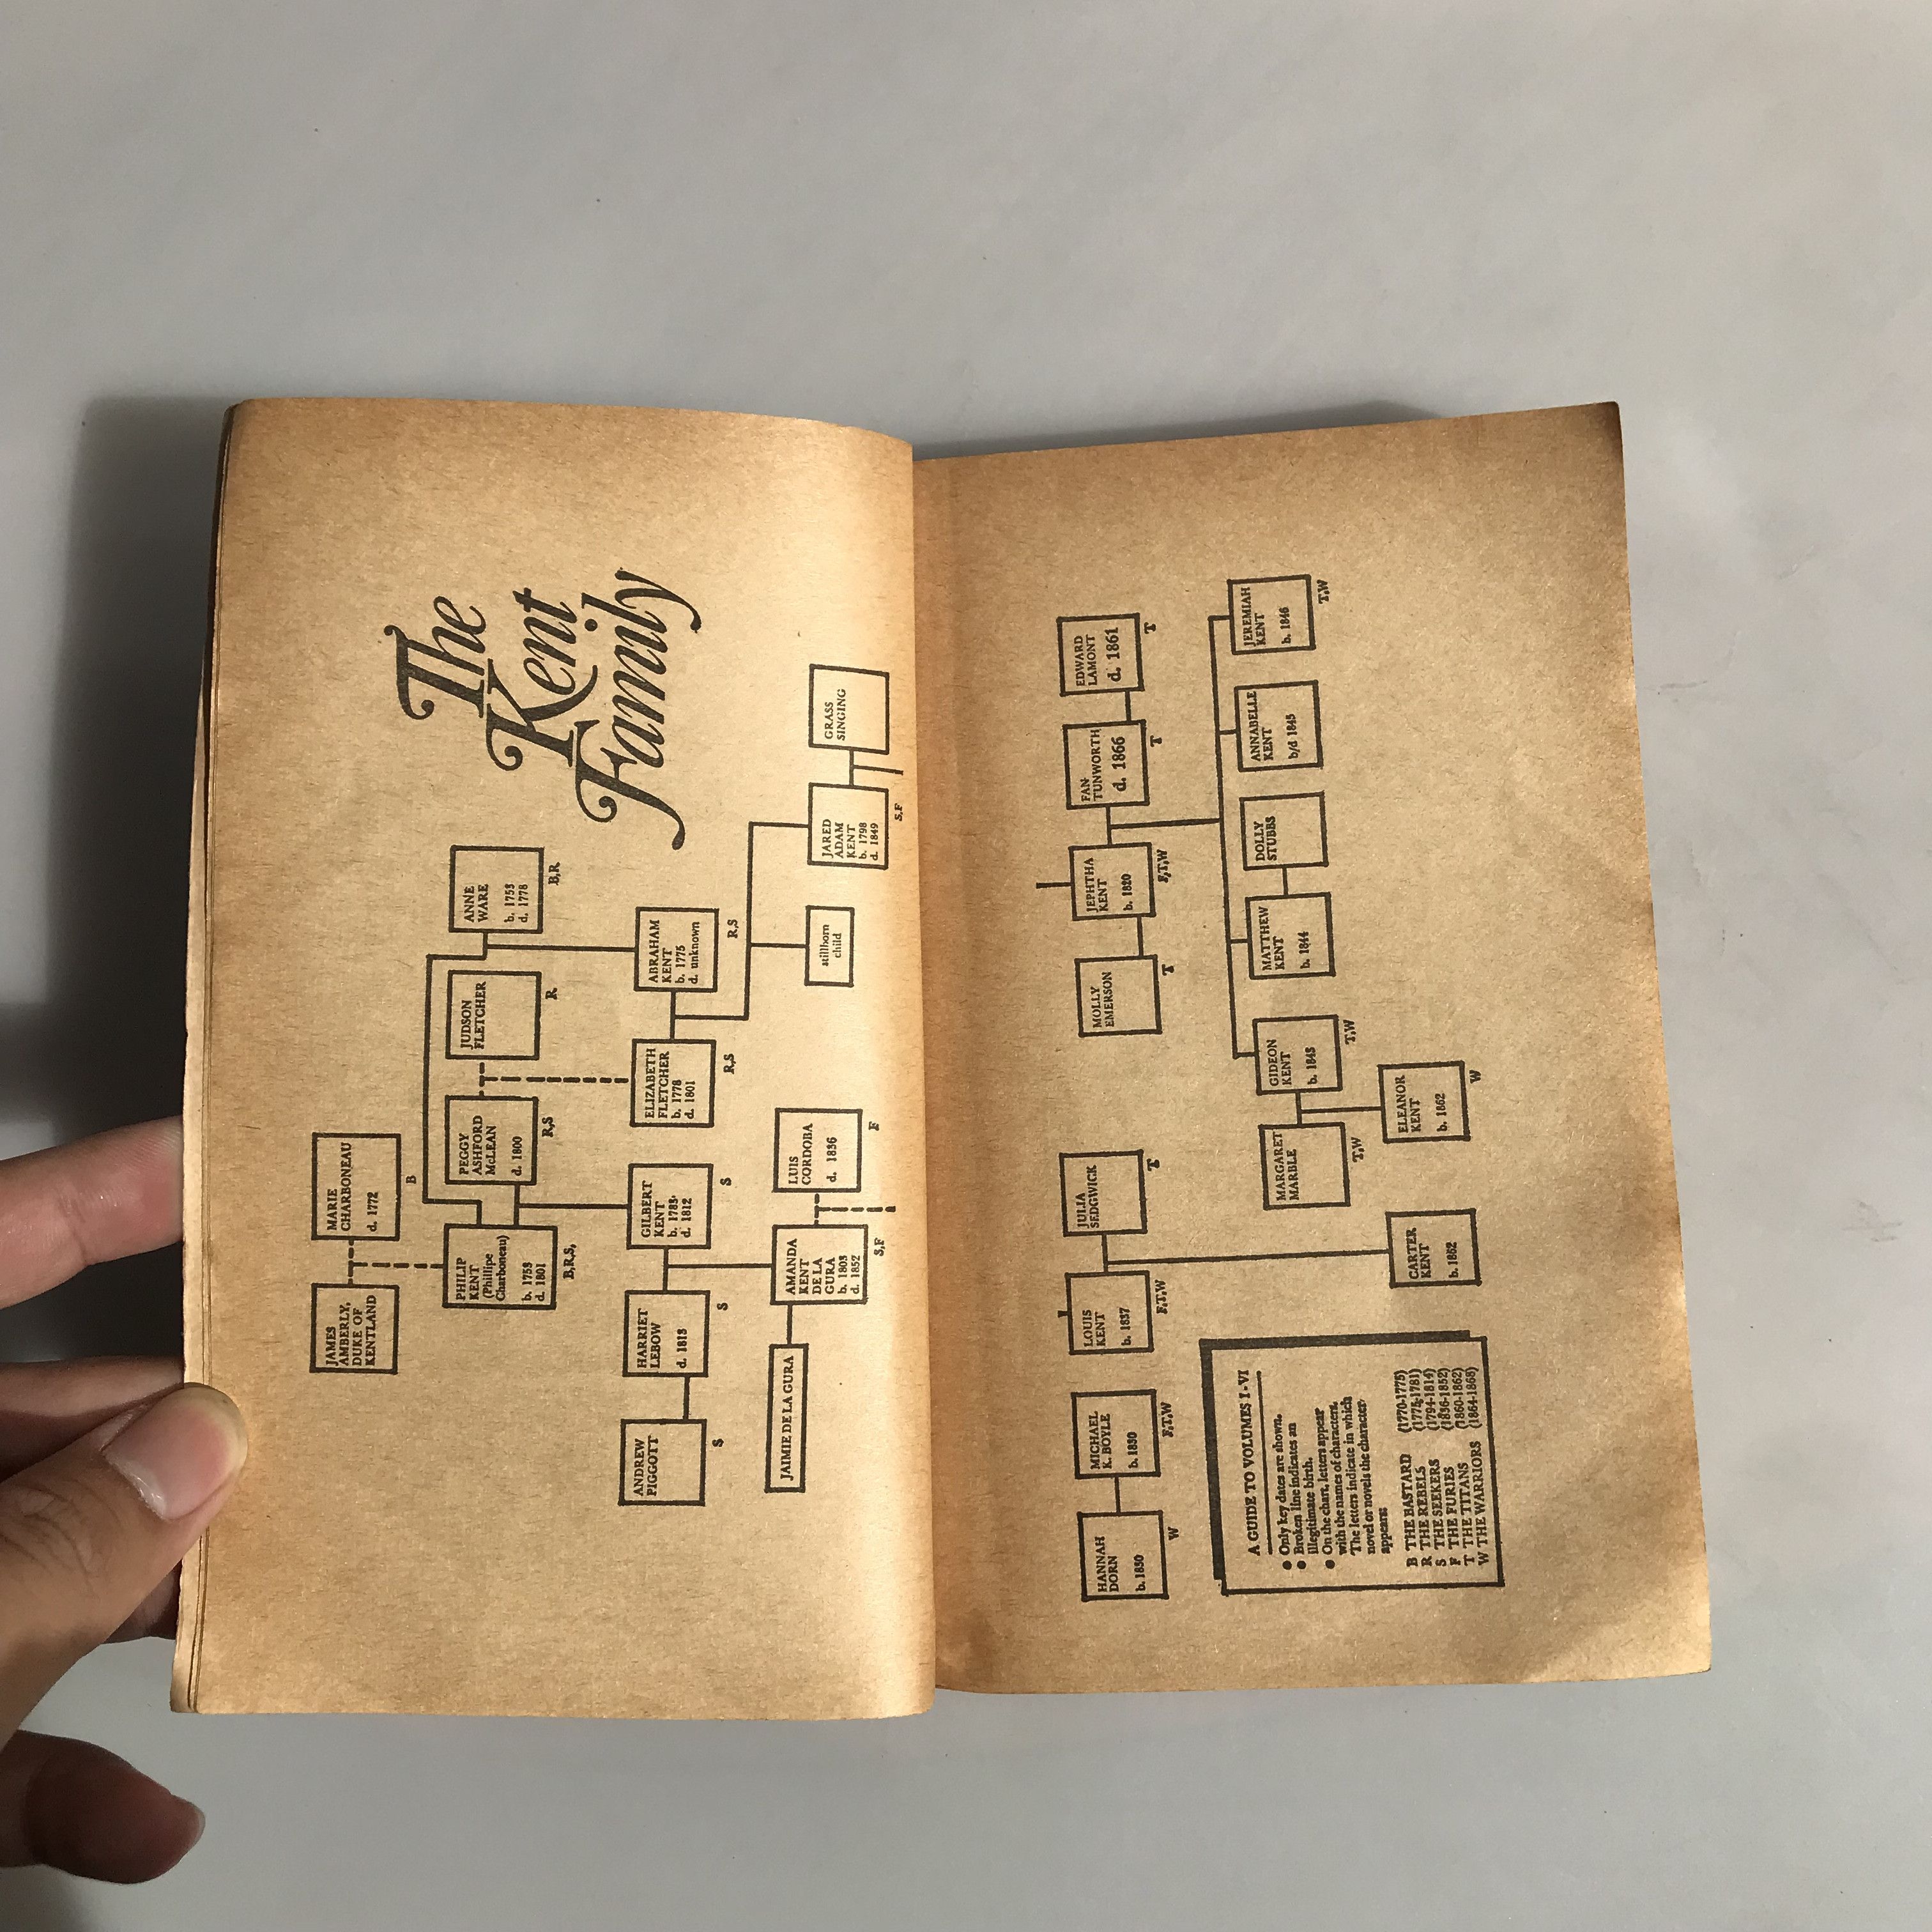 The
Kent
Family
JAMES
AMBERLY,
DUKE OF
KENTLAND
MARIE
CHARBONEAU
d. 1772
B
PHILIP
KENT
(Phillipe
Charboneau)
b. 1753
d. 1801
B,R,S,
PEGGY
ASHFORD
McLEAN
d. 1800
R,S
JUDSON
FLETCHER
R
ANNE
WARE
b. 1753
d. 1778
B,R
ANDREW
PIGGOTT
S
HARRIET
LEBOW
d. 1813
S
GILBERT
KENT
b. 1783
d. 1812
S
ELIZABETH
FLETCHER
b. 1778
d. 1801
R,S
ABRAHAM
KENT
b. 1775
d. unknown
R,S
JAIMIE DE LA GURA
AMANDA
KENT
DE LA
GURA
b. 1803
d. 1852
S,F
LUIS
CORDOBA
d. 1836
F
stillborn
child
JARED
ADAM
KENT
b. 1798
d. 1849
S,F
GRASS
SINGING
HANNAH
DORN
b. 1830
W
MICHAEL
K. BOYLE
b. 1830
F,T,W
LOUIS
KENT
b. 1837
F,T,W
JULIA
SEDGWICK
T
MOLLY
EMERSON
T
JEPHTHA
KENT
b. 1820
F,T,W
FAN
TUNWORTH
d. 1866
T
EDWARD
LAMONT
d. 1861
T
MARGARET
MARBLE
T,W
GIDEON
KENT
b. 1843
T,W
MATTHEW
KENT
b. 1844
DOLLY
STUBBS
ANNABELLE
KENT
b/d 1845
JEREMIAH
KENT
b. 1846
T,W
CARTER
KENT
b. 1862
ELEANOR
KENT
b. 1862
W
A GUIDE TO VOLUMES I-VI
● Only key dates are shown.
● Broken line indicates an
illegitimate birth.
● On the chart, letters appear
with the names of characters.
The letters indicate in which
novel or novels the character
appears:
B THE BASTARD (1770-1775)
R THE REBELS (1775-1781)
S THE SEEKERS (1794-1814)
F THE FURIES (1836-1852)
T THE TITANS (1860-1862)
W THE WARRIORS (1864-1868)